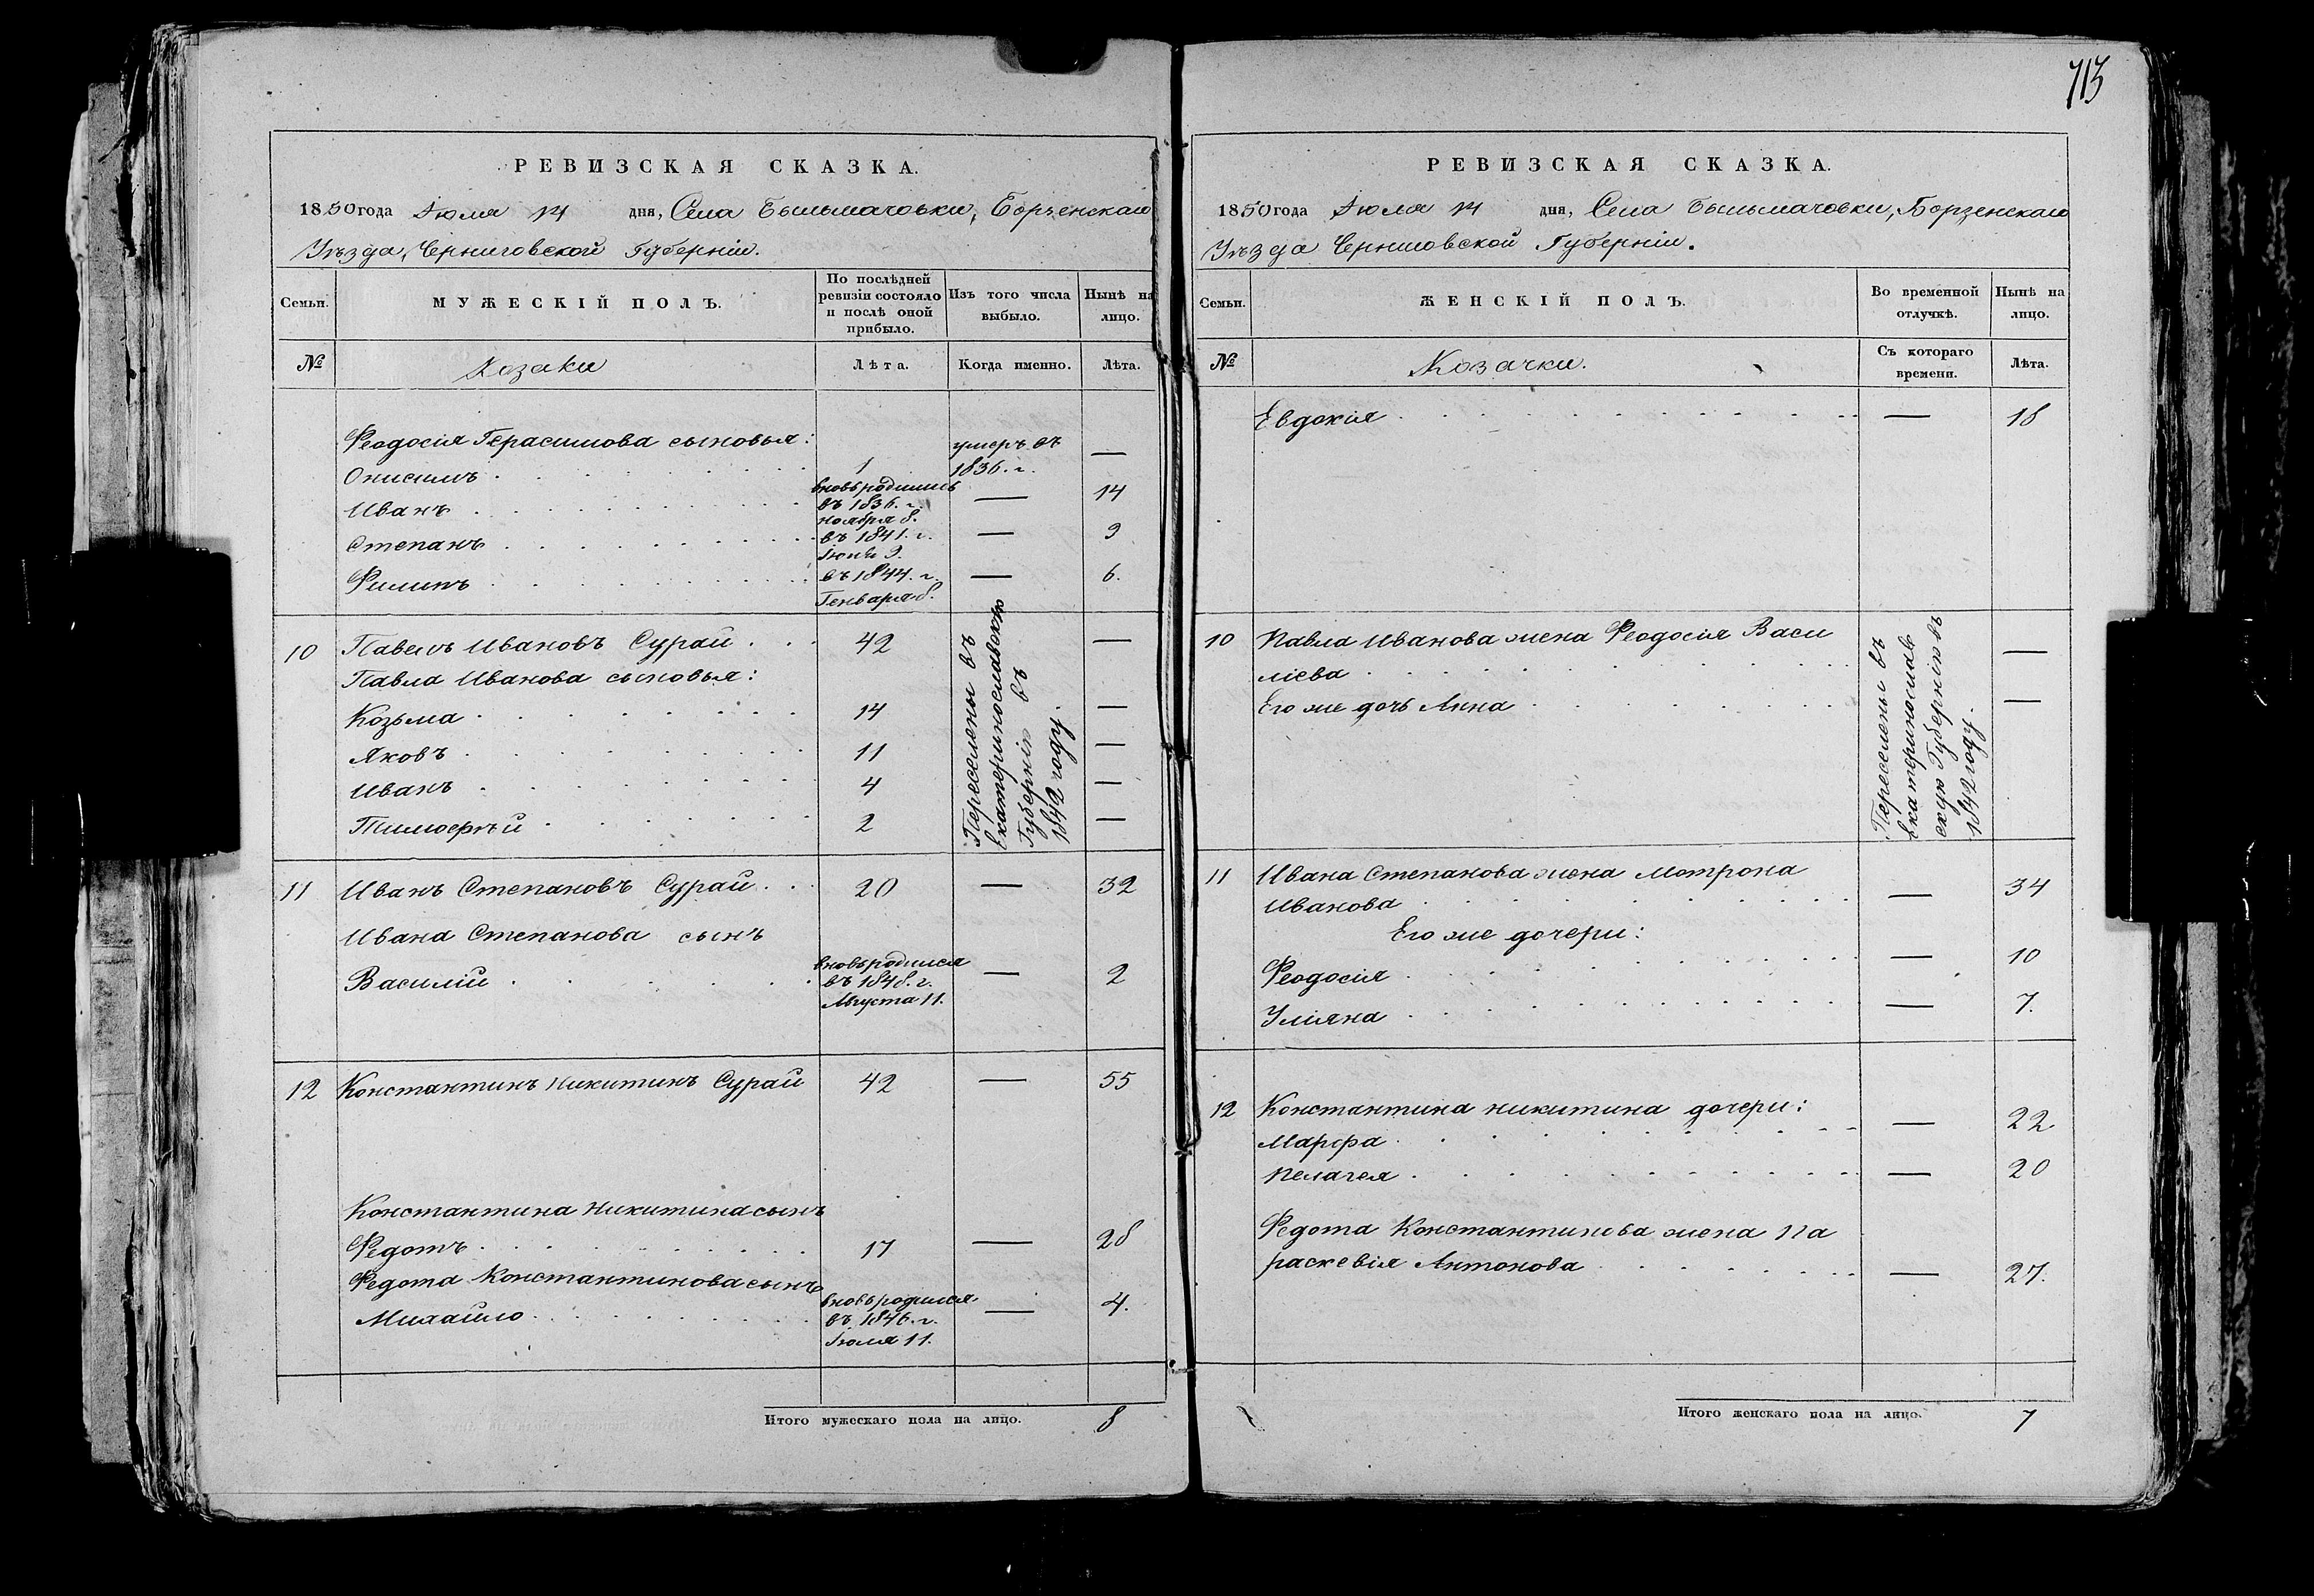 713
РЕВИЗСКАЯ СКАЗКА.
1850 года Іюля 14 дня, Села Бильмачовки, Борзенскаго
Уѣзда, Черниговской Губерніи.
Семьи.
МУЖЕСКІЙ ПОЛЪ.
По послѣдней
ревизіи состояло
и послѣ оной
прибыло.
Изъ того числа
выбыло.
Нынѣ на
лицо.
№
Козаки
Лѣта.
Когда именно.
Лѣта.
Феодосія Герасимова сыновья:
Онисимъ 1 умеръ въ 1836. г. —
Иванъ вновь родились въ 1836. г. ноября 8. — 14
Степанъ въ 1841. г. Іюня 9. — 9
Филипъ въ 1844. г. Генваря 8. — 6.
10 Павелъ Ивановъ Сурай 42 —
Павла Иванова сыновья:
Козьма 14 —
Яковъ 11 —
Иванъ 4 —
Тимофѣй 2 —
Переселены въ
Екатеринославскую
Губернію въ
1842 году.
11 Иванъ Степановъ Сурай 20 — 32
Ивана Степанова сынъ
Василій вновь родился въ 1848. г. Августа 11. — 2
12 Константинъ Никитинъ Сурай 42 — 55
Константина Никитина сынъ
Федотъ 17 — 28
Федота Константинова сынъ
Михайло вновь родился въ 1846. г. Іюля 11. — 4.
Итого мужескаго пола на лицо. 8
РЕВИЗСКАЯ СКАЗКА.
1850 года Іюля 14 дня, Села Бильмачовки, Борзенскаго
Уѣзда Черниговской Губерніи.
Семьи.
ЖЕНСКІЙ ПОЛЪ.
Во временной
отлучкѣ.
Нынѣ на
лицо.
№
Козачки.
Съ котораго
времени.
Лѣта.
Евдокія — 18
10 Павла Иванова жена Феодосія Васи
ліева —
Его же дочь Анна —
Переселены въ
Екатеринослав
скую Губернію въ
1842 году.
11 Ивана Степанова жена Мотрона
Иванова — 34
Его же дочери:
Феодосія — 10
Уліяна — 7.
12 Константина Никитина дочери:
Марфа — 22
Пелагея — 20
Федота Константинова жена Па
раскевія Антонова — 27.
Итого женскаго пола на лицо. 7